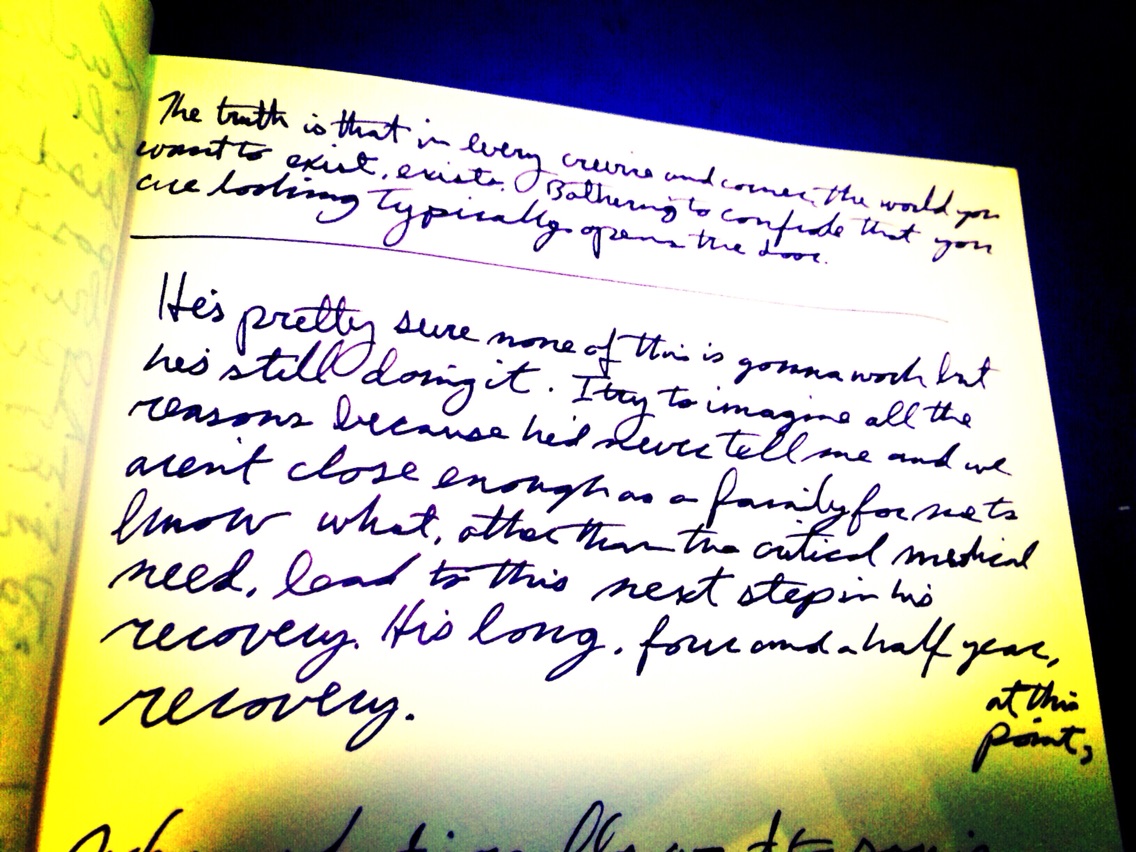 The truth is that in every crevice and corner, the world you
want to exist, exists. Bothering to confide that you
are looking typically opens the door.
He's pretty sure none of this is gonna work but
he's still doing it. I try to imagine all the
reasons because he'd never tell me and we
aren't close enough as a family for me to
know what, other than the critical medical
need, lead to this next step in his
recovery. His long, four and a half year,
at this
point,
recovery.